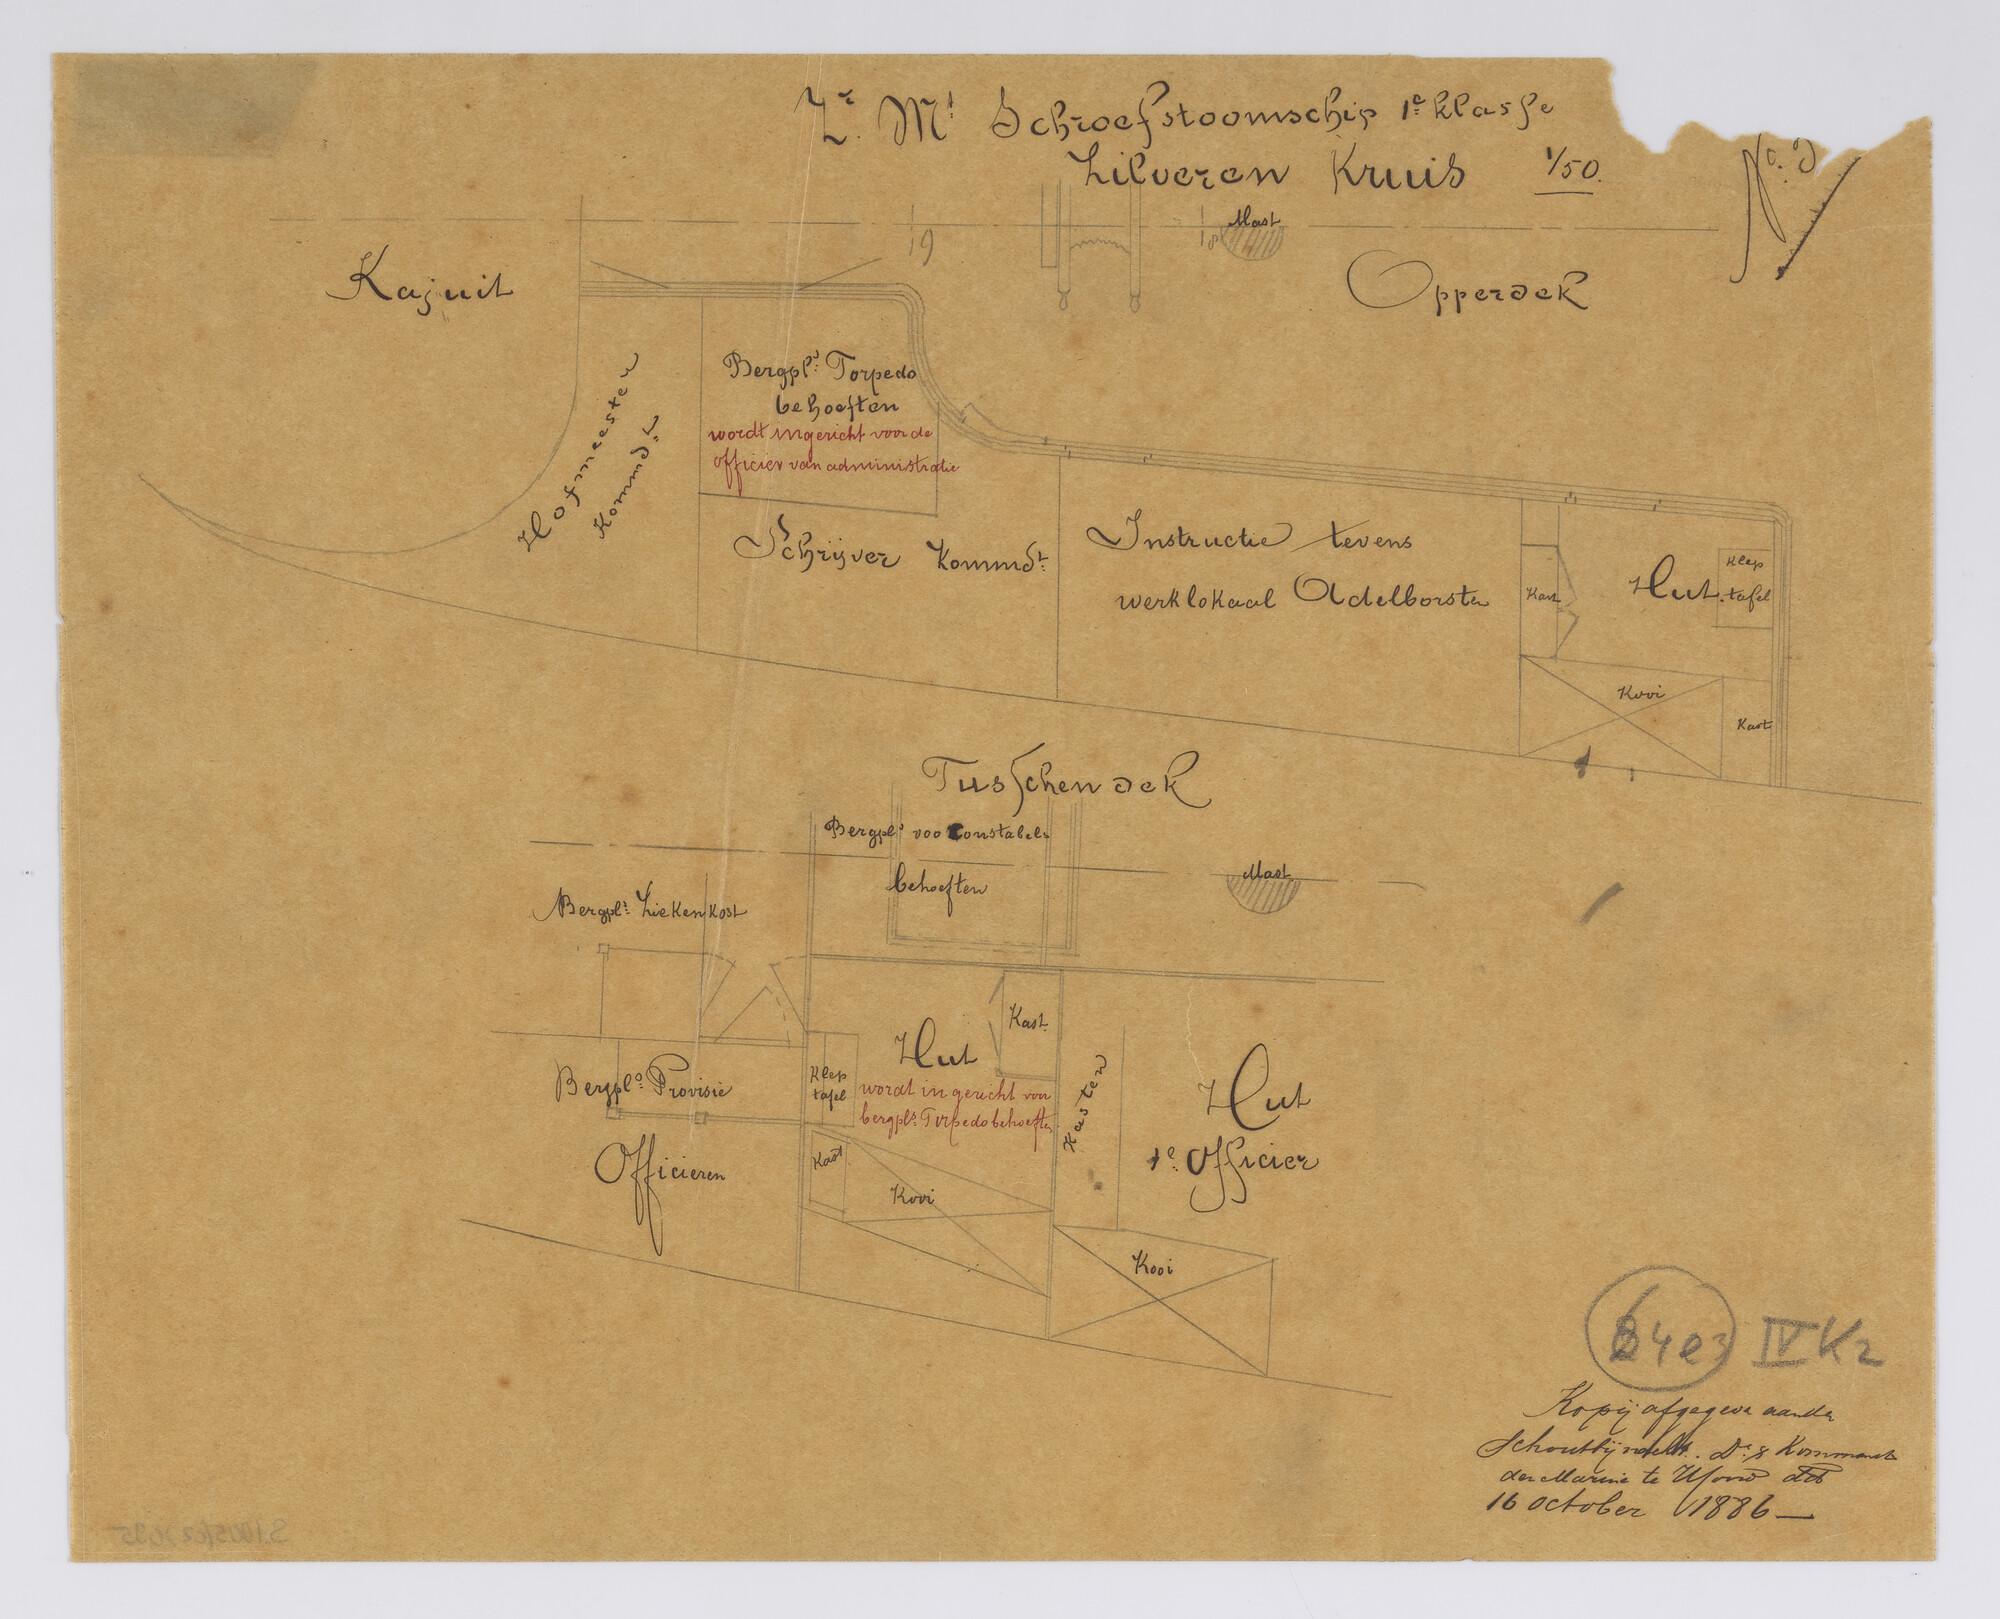 Zr. Ms Schroefstoomschip 1e klasse
Zilveren Kruis 1/50.
No.
Mast
19
18
Kajuit
Opperdek
Hofmeester
Kommdt
Bergpls. Torpedo
behoeften
wordt ingericht voor de
officier van administratie
Schrijver Kommdt.
Instructie tevens
werklokaal Adelborsten
Kast
Hut
Klep
tafel
Kooi
Kast
Tusschendek
Bergpls voor Constabels
behoeften
Mast
Bergpls. Ziekenkost
Kast.
Hut
wordt ingericht voor
bergpls. Torpedobehoeften
Klep
tafel
Bergpls. Provisie
Officieren
Kast
Kooi
Kasten
Hut
1e. Officier
Kooi
IV K2
Kopij afgegeven aan den
Schoutbijnacht. Dr. & Kommandt
der Marine te
16 October 1886